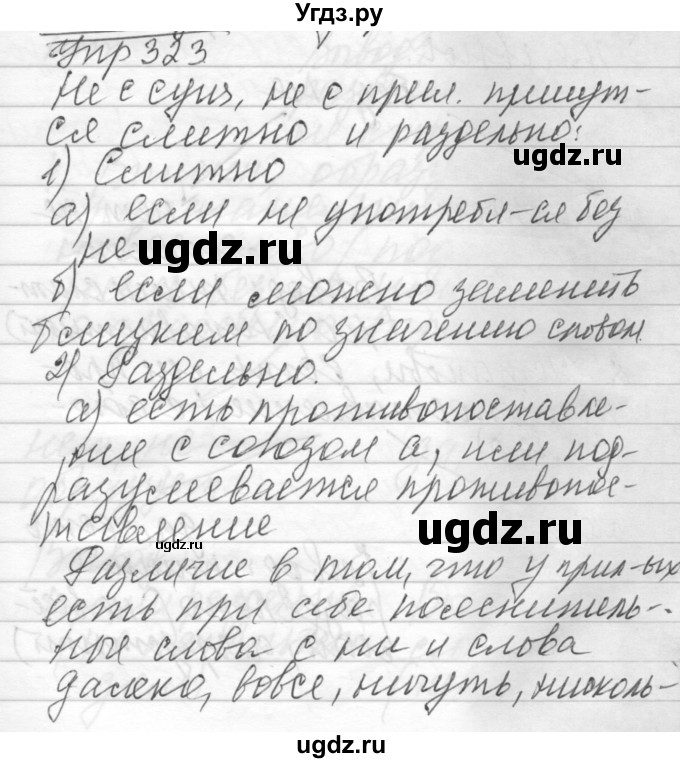 Угдз.ру
Упр 323
Не с сущ, не с прил. пишут-
ся слитно и раздельно:
ugdz.ru
1) Слитно
а) если не употребл-ся без
не
ugdz.ru
б) если можно заменить
близким по значению словом
2) Раздельно.
а) есть противопоставле-
ние с союзом а, или под-
разумевается противопос-
тавление
ugdz.ru
ugdz.ru
Различие в том, что у прил-ых
есть при себе пояснитель-
ные слова с ни и слова
далеко, вовсе, ничуть, нисколь-
ugdz.ru